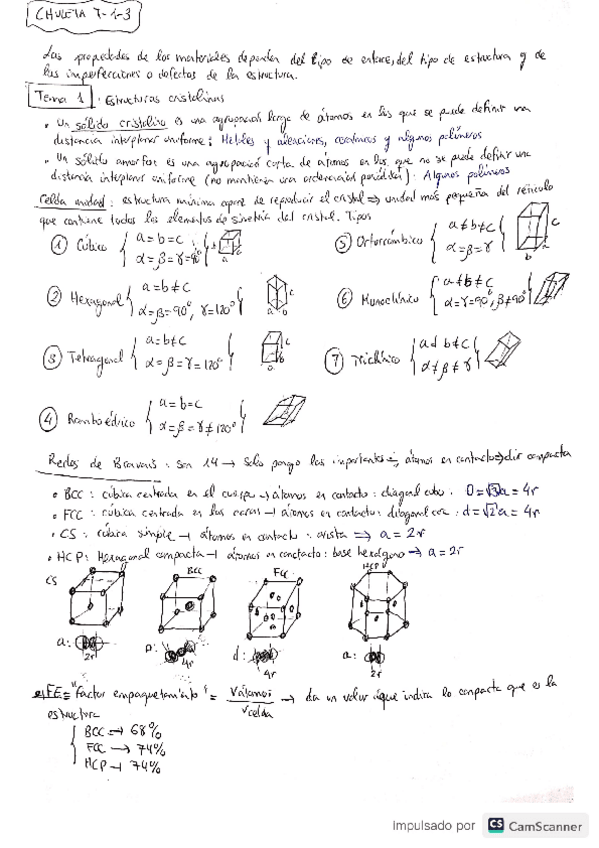 CHULETA T-1-3
Las propiedades de los materiales dependen del tipo de enlace, del tipo de estructura y de
las imperfecciones o defectos de la estructura.
Tema 1 . Estructuras cristalinas
• Un sólido cristalino es una agrupación larga de átomos en las que se puede definir una
distancia interplanar uniforme: Metales y aleaciones, cerámicas y algunos polímeros
• Un sólido amorfo es una agrupació corta de átomos en los que no se puede definir una
distancia interplanar uniforme (no mantienen una ordenación periódica). Algunos polímeros
Celda unidad: estructura mínima capaz de reproducir el cristal ⇒ unidad más pequeña del retículo
que contiene todos los elementos de simetría del cristal. Tipos
① Cúbico { a = b = c
α = β = γ = 90° } a c
⑤ Ortorrómbico { a ≠ b ≠ c
α = β = γ } a b c
② Hexagonal { a = b ≠ c
α = β = 90°, γ = 120° } a b c
⑥ Monoclínico { a ≠ b ≠ c
α = γ = 90°, β ≠ 90° }
③ Tetragonal { a = b ≠ c
α = β = γ = 120° } a b c
⑦ Triclínico { a ≠ b ≠ c
α ≠ β ≠ γ }
④ Romboédrico { a = b = c
α = β = γ ≠ 120° }
Redes de Bravais: son 14 → Solo pongo las importantes átomos en contacto ⇒ dir compacta
• BCC: cúbica centrada en el cuerpo → átomos en contacto: diagonal cubo. D = √3a = 4r
• FCC: cúbica centrada en las caras → átomos en contacto: diagonal cara: d = √2a = 4r
• CS: cúbica simple → átomos en contacto: arista ⇒ a = 2r
• HCP: Hexagonal compacta → átomos en contacto: base hexágono → a = 2r
CS BCC FCC HCP
a: D: d: a:
2r 4r 4r 2r
FE = "Factor empaquetamiento" = Vátomos / Vcelda → da un valor que indica lo compacta que es la
estructura
{ BCC → 68%
FCC → 74%
HCP → 74%
Impulsado por CS CamScanner